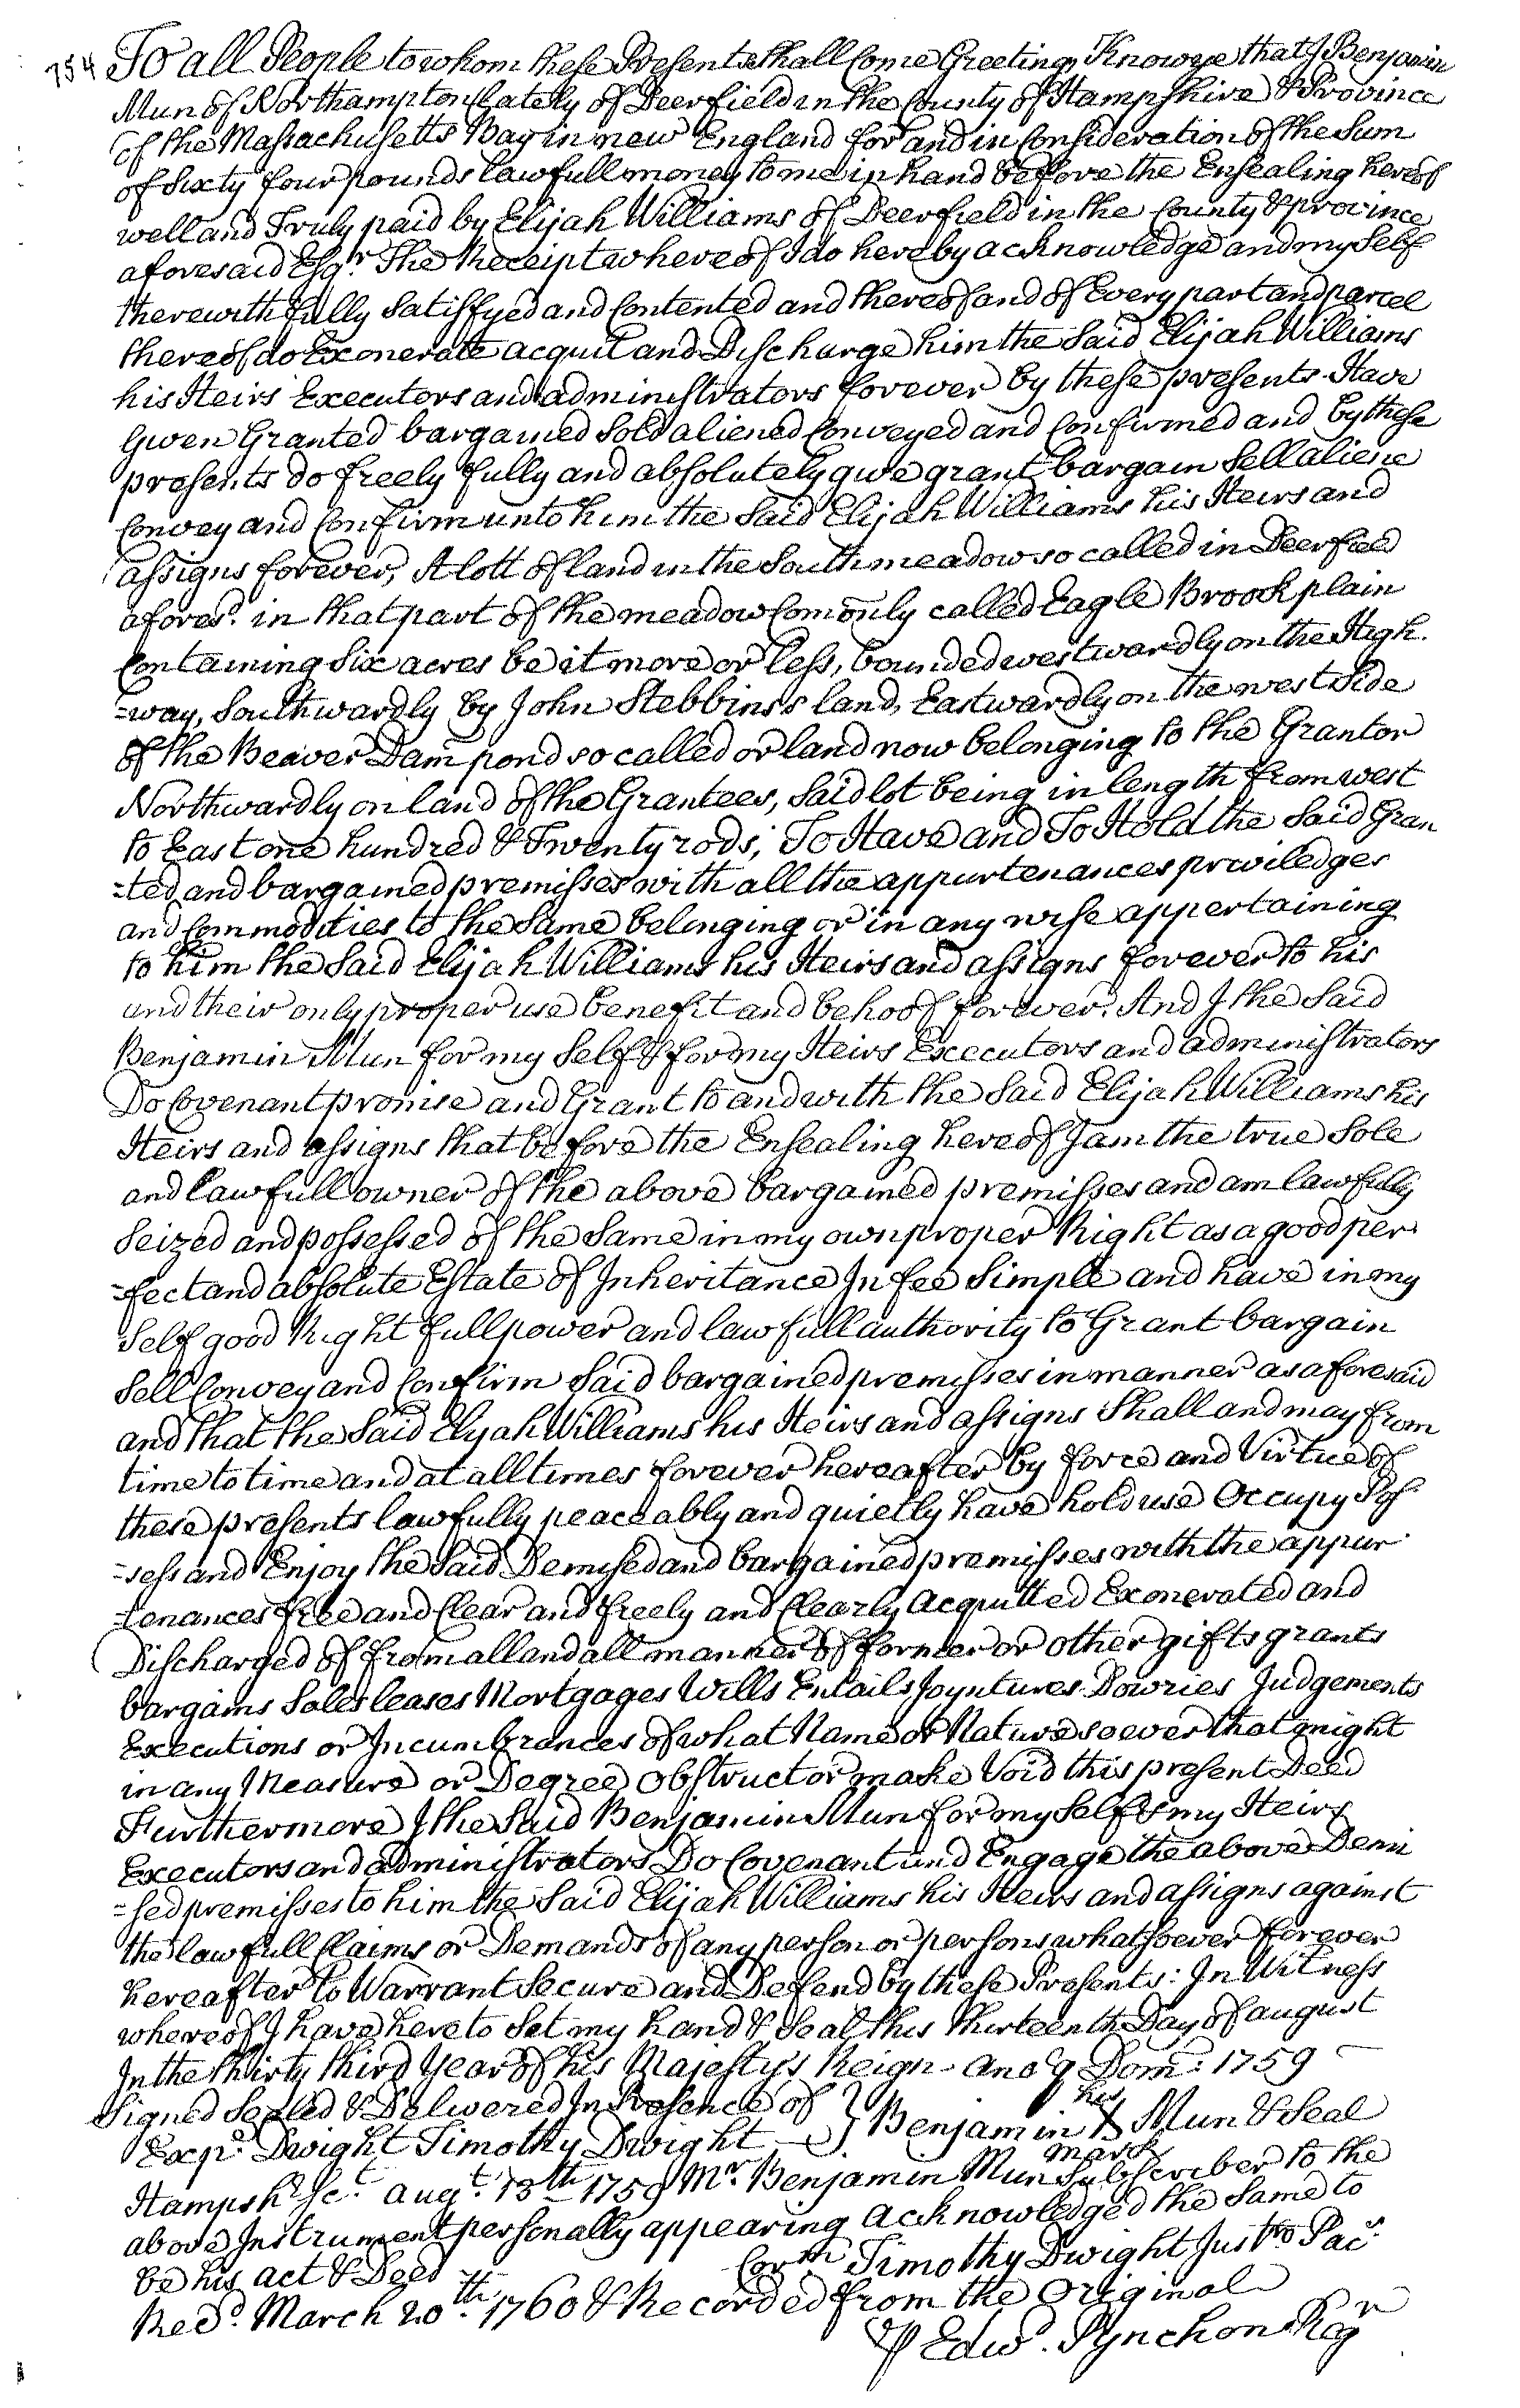 754 To all People to whom these Presents shall Come Greeting, Know ye that I Benjamin
Mun of Northampton lately of Deerfield in the County of Hampshire & Province
of the Massachusetts Bay in new England for and in Consideration of the Sum
of Sixty four pounds lawfull money to me in hand before the Ensealing hereof
well and Truly paid by Elijah Williams of Deerfield in the County & province
aforesaid Esqr. The Receipt whereof I do hereby acknowledge and my Self
therewith fully Satisfyed and Contented and thereof and of Every part and parcel
thereof do Exonerate acquit and Discharge him the Said Elijah Williams
his Heirs Executors and administrators forever by these presents. Have
Given Granted bargained Sold aliened Conveyed and Confirmed and by these
presents do freely fully and absolutely give grant bargain Sell aliene
Convey and Confirm unto him the Said Elijah Williams his Heirs and
assigns forever, A lott of land in the South meadow so called in Deerfield
aforesd. in that part of the meadow Comonly called Eagle Broock plain
Containing Six acres be it more or less, bounded westwardly on the High
=way, Southwardly by John Stebbins's land, Eastwardly on the west Side
of the Beaver Dam pond so called or land now belonging to the Grantor
Northwardly on land of the Grantees, Said lot being in length from west
to East one hundred & Twenty rods; To Have and To Hold the Said Gran
=ted and bargained premisses with all the appurtenances priviledges
and Commodities to the Same belonging or in any wise appertaining
to him the Said Elijah Williams his Heirs and assigns forever to his
and their only proper use benefit and behoof forever. And I the Said
Benjamin Mun for my Self & for my Heirs Executors and administrators
Do Covenant promise and Grant to and with the Said Elijah Williams his
Heirs and assigns that before the Ensealing hereof I am the true Sole
and lawfull owner of the above bargained premisses and am lawfully
Seized and possessed of the Same in my own proper Right as a good per
=fect and absolute Estate of Inheritance In fee Simple and have in my
Self good Right full power and lawfull authority to Grant bargain
Sell Convey and Confirm Said bargained premisses in manner as aforesaid
and that the Said Elijah Williams his Heirs and assigns Shall and may from
time to time and at all times forever hereafter by force and Virtue of
these presents lawfully peaceably and quietly have hold use Occupy Pos
=sess and Enjoy the Said Demised and bargained premisses with the appur
=tenances free and Clear and freely and Clearly Acquitted Exonerated and
Discharged of from all and all manner of former or other gifts grants
bargains Sales leases Mortgages Wills Entails Joyntures Dowries Judgements
Executions or Incumbrances of what Name or Nature soever that might
in any Measure or Degree obstruct or make Void this present Deed
Furthermore I the Said Benjamin Mun for my Self & my Heirs
Executors and administrators Do Covenant and Engage the above Demi
=sed premisses to him the Said Elijah Williams his Heirs and assigns against
the lawfull Claims or Demands of any person or persons whatsoever forever
hereafter to Warrant Secure and Defend by these Presents: In Witness
whereof I have hereto Set my hand & Seal this thirteenth Day of august
In the thirty third Year of his Majesty's Reign - Anoq Dom: 1759
Signed Sealed & Delivered In Presence of } his
Expr. Dwight Timothy Dwight } Benjamin X Mun & Seal
mark
Hampshr. Sct. augt. 13th 1759 Mr. Benjamin Mun Subscriber to the
above Instrument personally appearing Acknowledged the Same to
be his act & Deed Corm Timothy Dwight Justo Pacs.
Recd. March 20th. 1760 & Recorded from the Original
P Edwd. Pynchon Regr